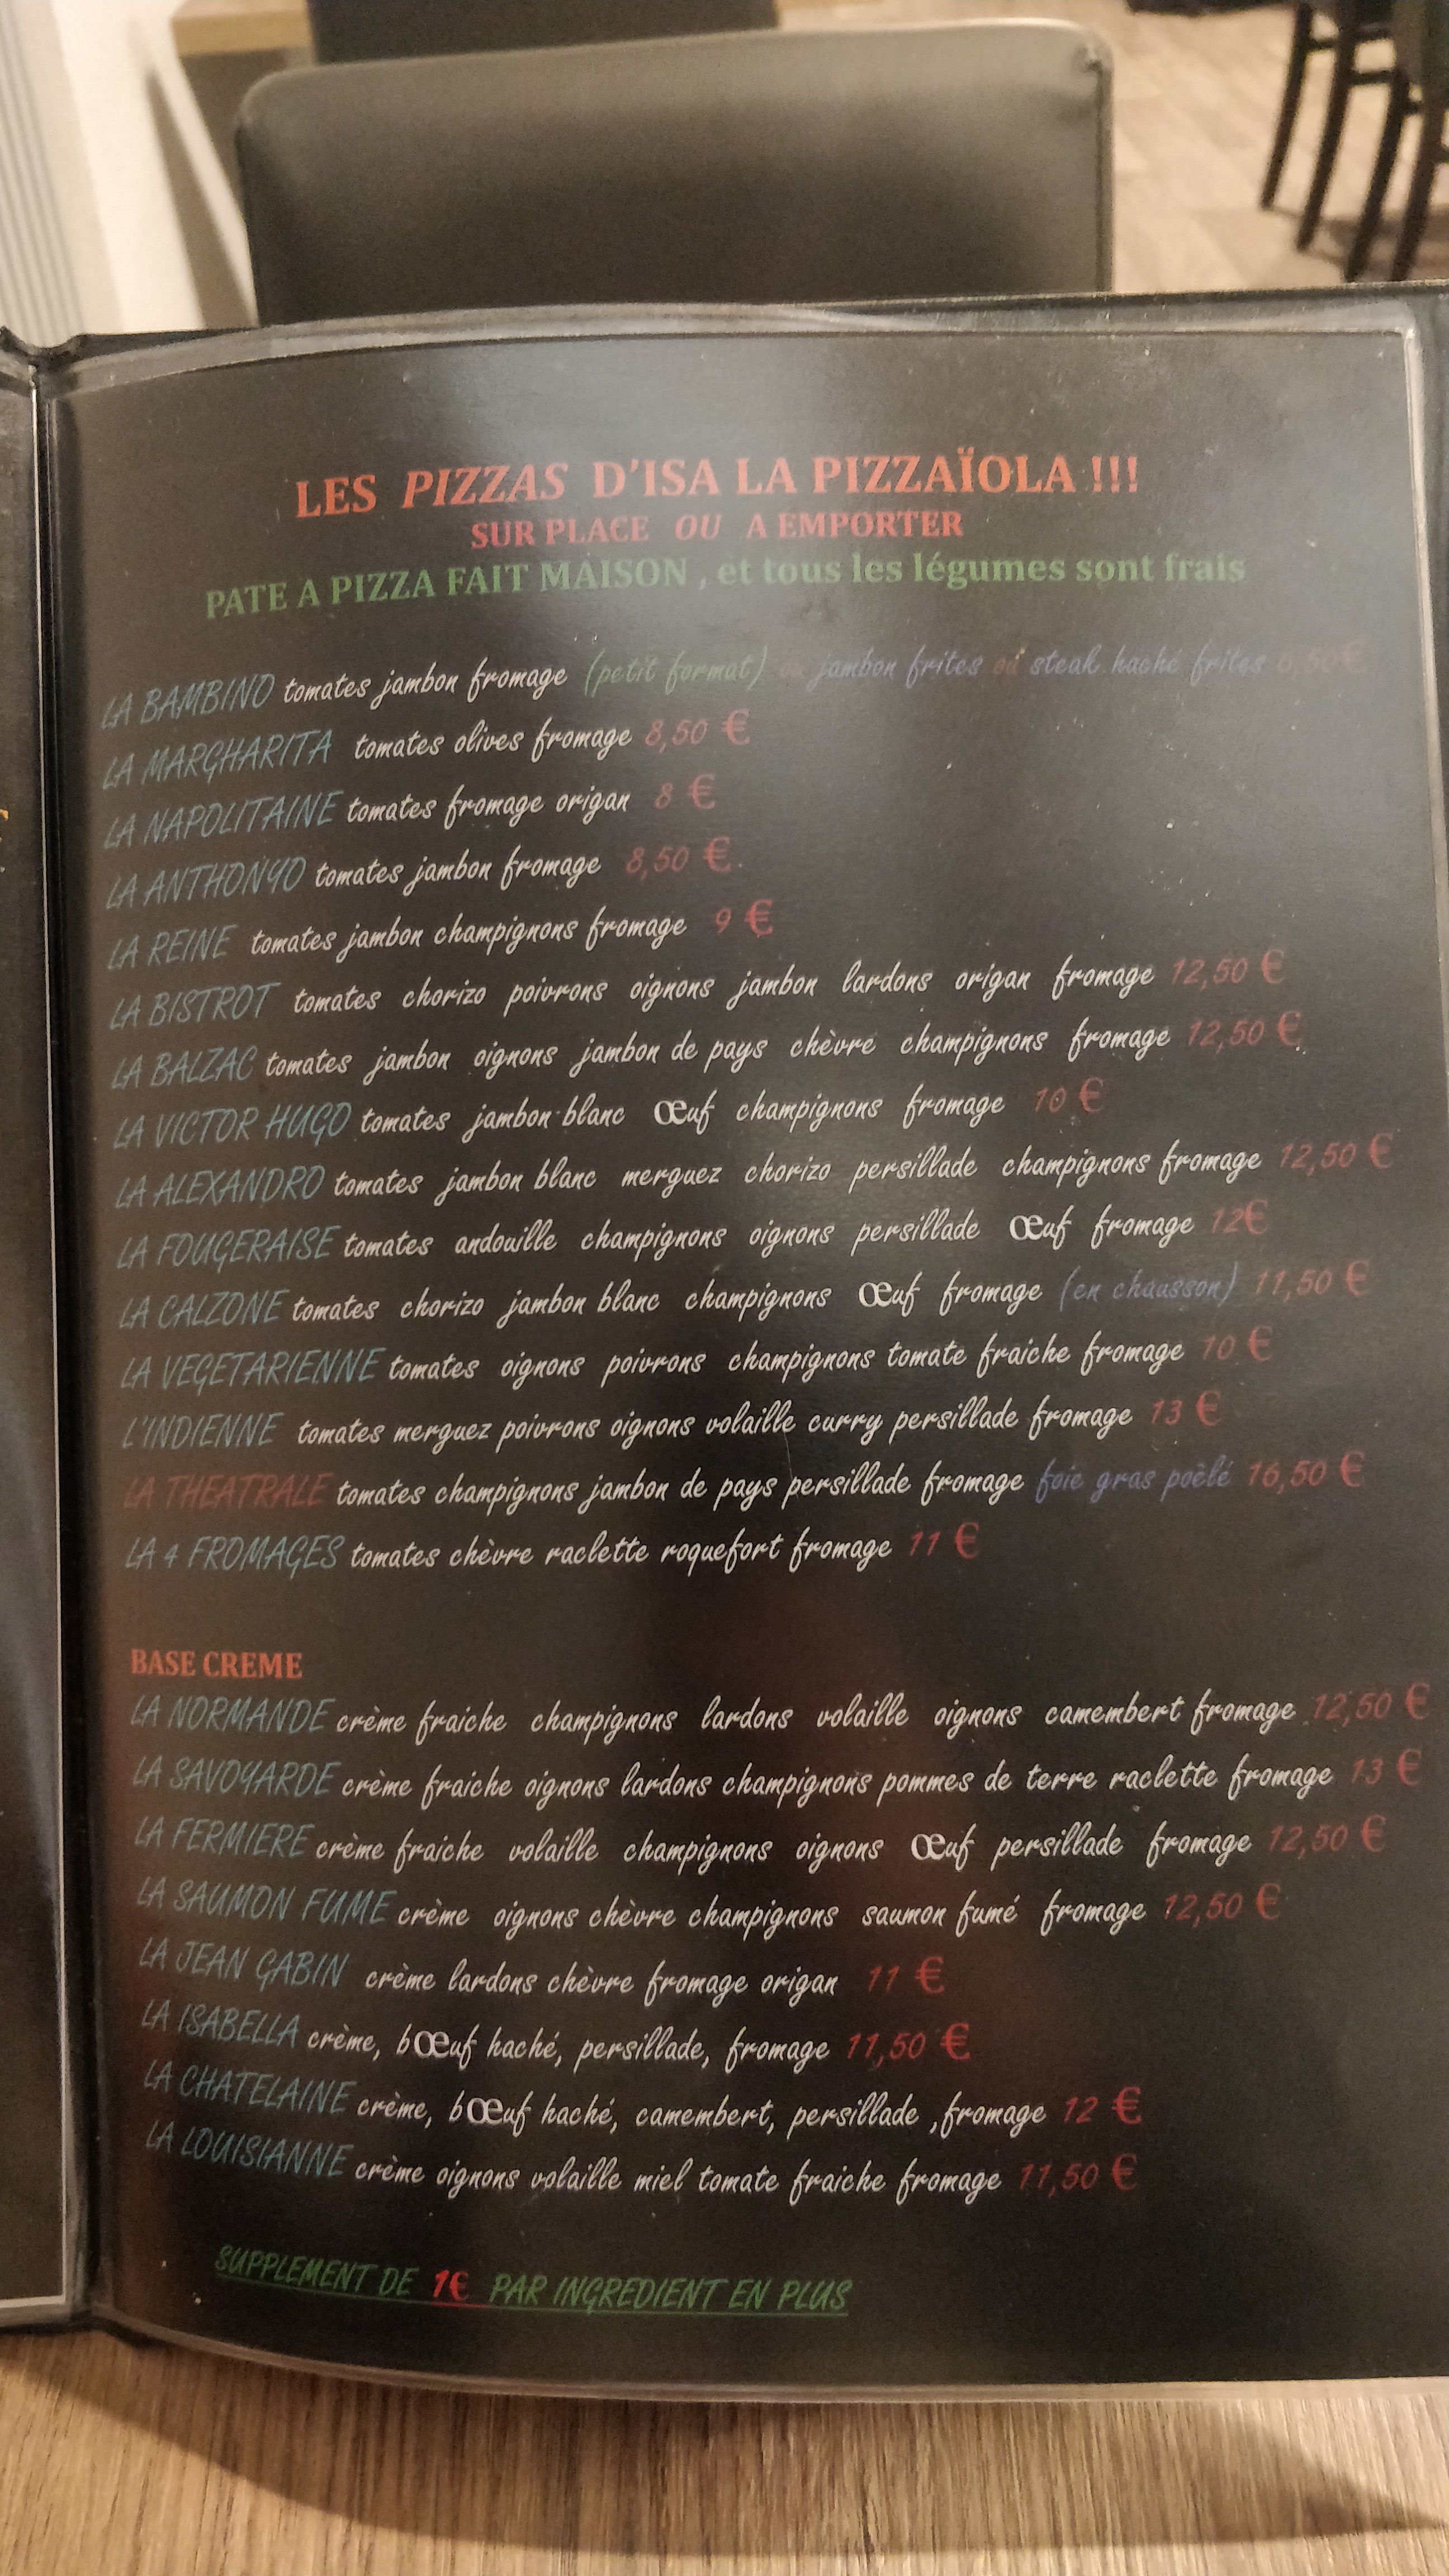 LES PIZZAS D'ISA LA PIZZAÏOLA !!!
SUR PLACE OU A EMPORTER
PATE A PIZZA FAIT MAISON , et tous les légumes sont frais
LA BAMBINO tomates jambon fromage (petit format) ou jambon frites ou steak haché frites 6,50€
LA MARGHARITA tomates olives fromage 8,50 €
LA NAPOLITAINE tomates fromage origan 8 €
LA ANTHONYO tomates jambon fromage 8,50 €.
LA REINE tomates jambon champignons fromage 9 €
LA BISTROT tomates chorizo poivrons oignons jambon lardons origan fromage 12,50 €
LA BALZAC tomates jambon oignons jambon de pays chèvre champignons fromage 12,50 €
LA VICTOR HUGO tomates jambon blanc œuf champignons fromage 10 €
LA ALEXANDRO tomates jambon blanc merguez chorizo persillade champignons fromage 12,50 €
LA FOUGERAISE tomates andouille champignons oignons persillade œuf fromage 12€
LA CALZONE tomates chorizo jambon blanc champignons œuf fromage (en chausson) 11,50 €
LA VEGETARIENNE tomates oignons poivrons champignons tomate fraiche fromage 10 €
L'INDIENNE tomates merguez poivrons oignons volaille curry persillade fromage 13 €
LA THEATRALE tomates champignons jambon de pays persillade fromage foie gras poêlé 16,50 €
LA 4 FROMAGES tomates chèvre raclette roquefort fromage 11 €
BASE CREME
LA NORMANDE crème fraiche champignons lardons volaille oignons camembert fromage 12,50 €
LA SAVOYARDE crème fraiche oignons lardons champignons pommes de terre raclette fromage 13 €
LA FERMIERE crème fraiche volaille champignons oignons œuf persillade fromage 12,50 €
LA SAUMON FUME crème oignons chèvre champignons saumon fumé fromage 12,50 €
LA JEAN GABIN crème lardons chèvre fromage origan 11 €
LA ISABELLA crème, bœuf haché, persillade, fromage 11,50 €
LA CHATELAINE crème, bœuf haché, camembert, persillade ,fromage 12 €
LA LOUISIANNE crème oignons volaille miel tomate fraiche fromage 11,50 €
SUPPLEMENT DE 1€ PAR INGREDIENT EN PLUS